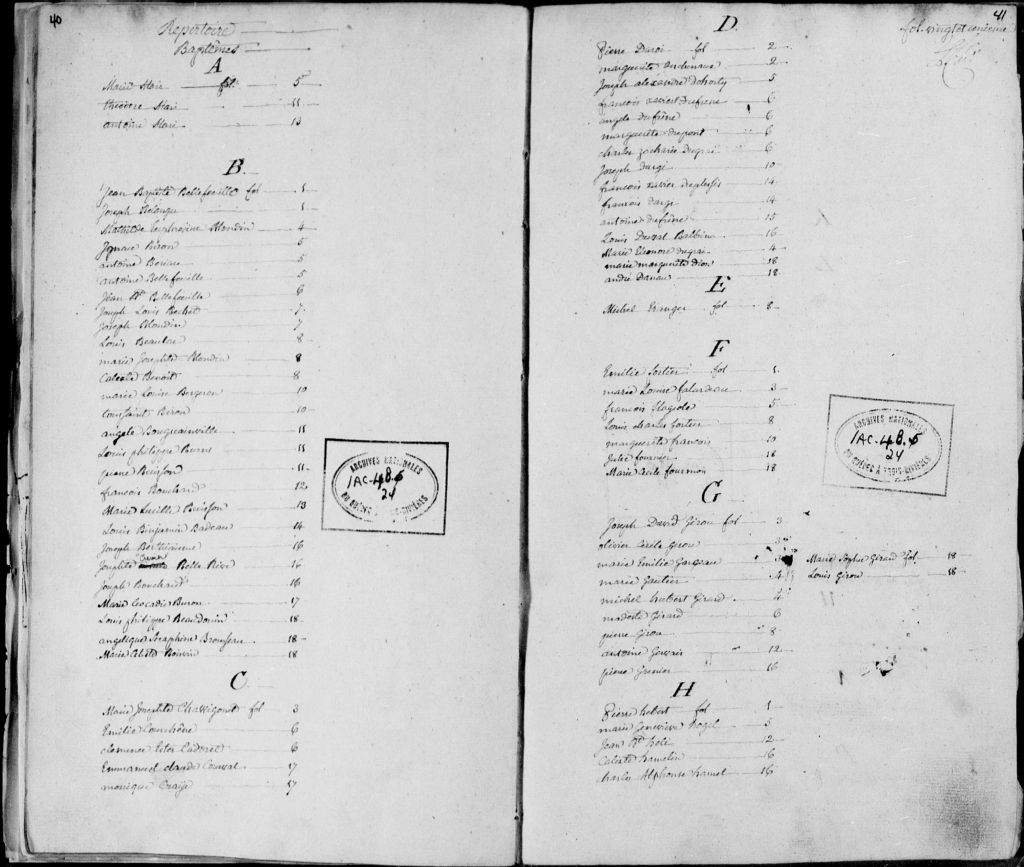 40
Repertoire
Baptêmes
A
Marie Hari fol. 5
théodore Hari 11
antoine Hari 13
B.
Jean Baptiste Bellefeuille fol 1
Joseph Belanger 1
Mathilde Euphrosine Blondin 4
Ignace Biron 5
antoine Beriau 5
antoine Bellefeuille 5
Jean Bte Bellefeuille 6
Joseph Louis Bechet 7
Joseph Blondin 7
Louis Beaulac 8
marie Josephte Blondin 8
Calixte Benoit 8
marie Louise Bergeron 10
toussaint Beron 10
angele Bouguainville 11
Louis philippe Burns 11
pierre Buisson 11
françois Bouchard 12
Marie Lucille Buisson 13
Louis Benjamin Badeau 14
Joseph Berthiaume 16
Josephte Belle Rive 16
Joseph Bouchard 16
Marie Leocadie Buron 17
Louis philippe Beaudouin 18
angelique Seraphine Brousseau 18
Marie Celeste Boivin 18
C
Marie Josephte Chavigont fol 3
Emilie Courchêne 6
clemence Cadoret 6
Emmanuel claude Courval 17
monique Craige 17
ARCHIVES NATIONALES
1AC-48.5
24
DU QUÉBEC À TROIS-RIVIÈRES
41
fol. vingt et unieme
D
Pierre Daroi fol 2
marguerite Desruisseaux 2
Joseph alexandre Doherty 5
françois xavier Dufrene 6
angele Dufrêne 6
marguerite Dupont 6
charles zacharie Dugrai 6
Joseph Durgi 10
françois xavier Duplessis 14
françois Durgi 14
antoine Dufrêne 15
Louis Duval Balbine 16
Marie Eleonore Dugrai 4
marie marguerite Dion 18
andré Danau 18
E
Michel Erranger fol 8
F
Emilie Fortier fol 1
marie Louise falardeau 3
françois flageole 5
Louis charles fortier 8
marguerite francois 10
Julie fournier 18
Marie Cecile fournier 18
G
Joseph David Girou fol 3
olivier Cirile Girou 3
marie Emilie Gargrau 3
marie Gautier 4
michel hubert Girard 4
modeste Girard 6
pierre Girou 8
antoine Gervais 12
pierre Grenier 16
Marie Sophie Girard fol. 18
Louis Girou 18
H
Pierre hebert fol 1
marie Genevieve hozel 5
Jean Bte heli 12
Caliste hamelin 16
charles Alphonse hamel 16
ARCHIVES NATIONALES
1AC-48.5
24
DU QUÉBEC À TROIS-RIVIÈRES